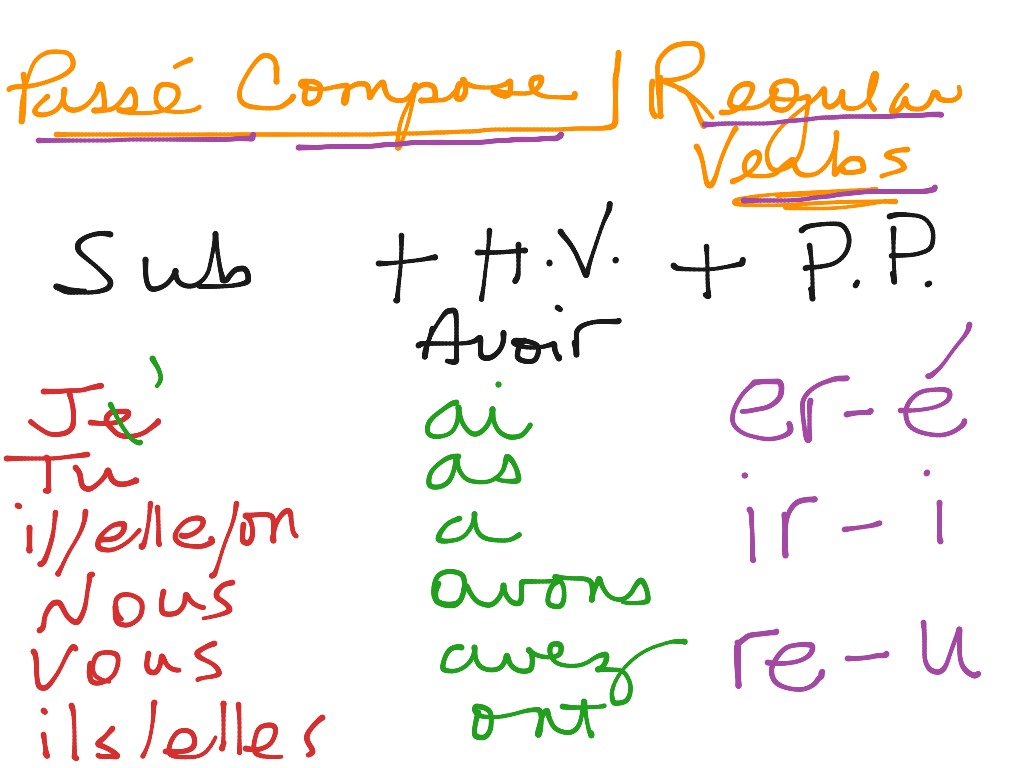 Passé Compose | Regular
Verbs
Sub + H.V. + P.P.
Avoir
Je' ai er - é
Tu as
il/elle/on a ir - i
Nous avons
vous avez re - u
ils/elles ont